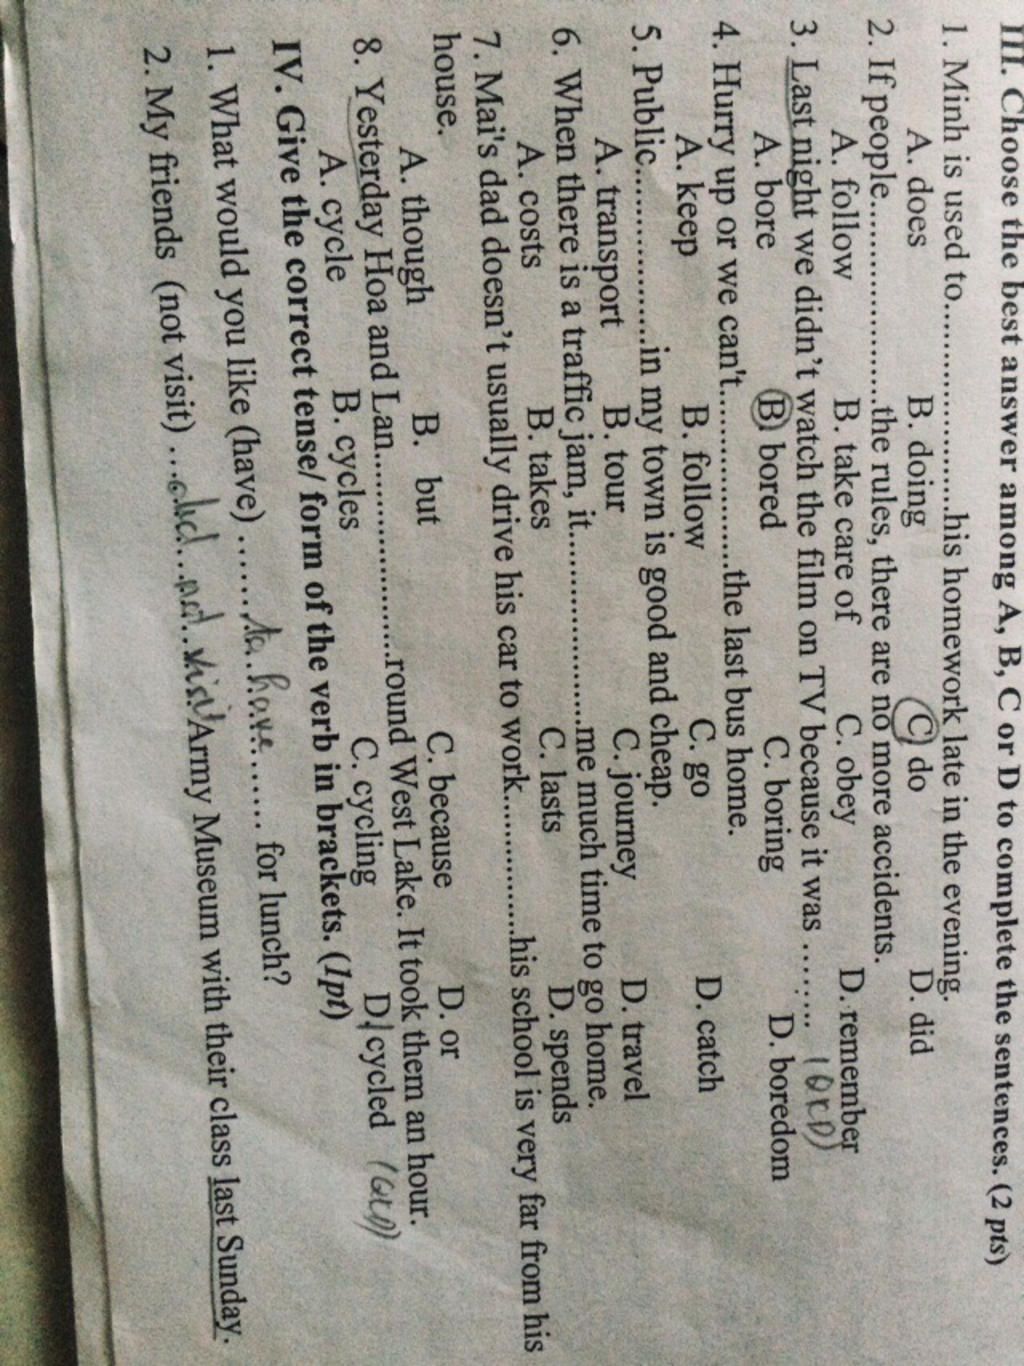 III. Choose the best answer among A, B, C or D to complete the sentences. (2 pts)
1. Minh is used to.........................his homework late in the evening.
A. does B. doing C. do D. did
2. If people.........................the rules, there are no more accidents.
A. follow B. take care of C. obey D. remember
3. Last night we didn't watch the film on TV because it was ........ (QKD)
A. bore B. bored C. boring D. boredom
4. Hurry up or we can't.....................the last bus home.
A. keep B. follow C. go D. catch
5. Public.....................in my town is good and cheap.
A. transport B. tour C. journey D. travel
6. When there is a traffic jam, it.....................me much time to go home.
A. costs B. takes C. lasts D. spends
7. Mai's dad doesn't usually drive his car to work...............his school is very far from his
house.
A. though B. but C. because D. or
8. Yesterday Hoa and Lan.........................round West Lake. It took them an hour.
A. cycle B. cycles C. cycling D. cycled (QKD)
IV. Give the correct tense/ form of the verb in brackets. (1pt)
1. What would you like (have) ......to have....... for lunch?
2. My friends (not visit) ...did...not...visit Army Museum with their class last Sunday.